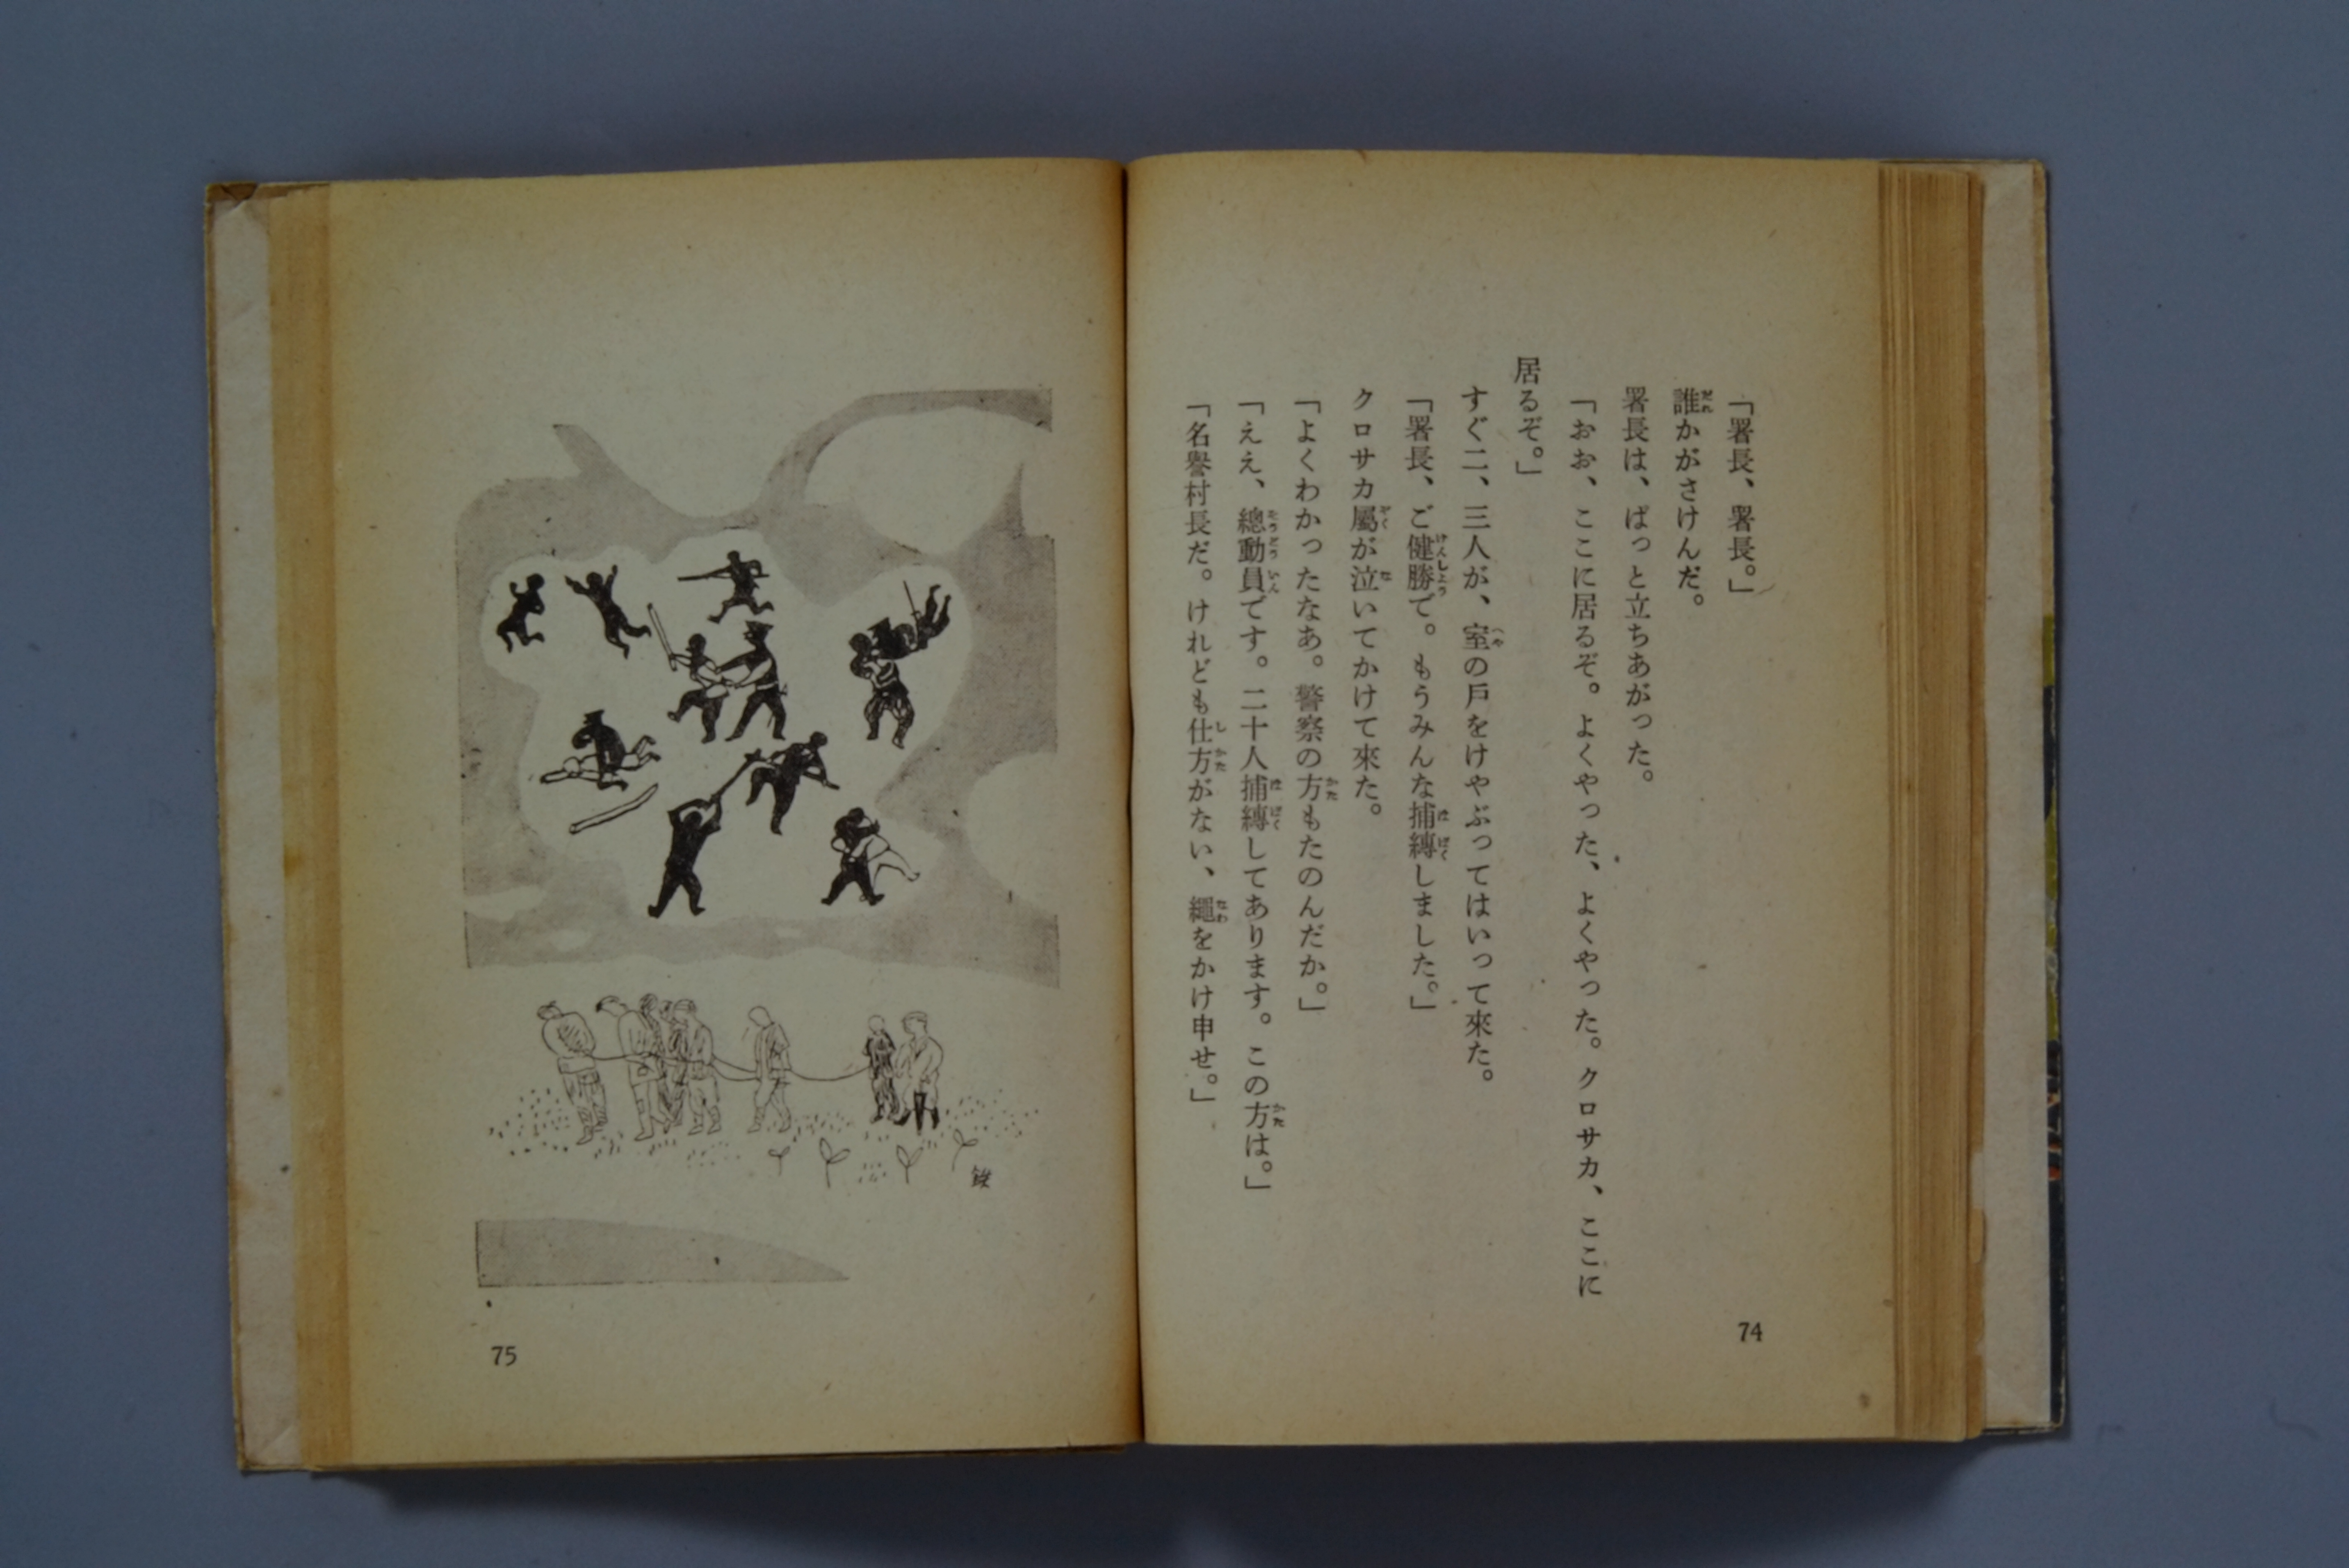 「署長、署長。」
誰かがさけんだ。
署長は、ぱっと立ちあがった。
「おお、ここに居るぞ。よくやった、よくやった。クロサカ、ここに
居るぞ。」
すぐ二、三人が、室の戸をけやぶってはいって來た。
「署長、ご健勝で。もうみんな捕縛しました。」
クロサカ屬が泣いてかけて來た。
「よくわかったなあ。警察の方もたのんだか。」
「ええ、總動員です。二十人捕縛してあります。この方は。」
「名譽村長だ。けれども仕方がない、繩をかけ申せ。」
74
75